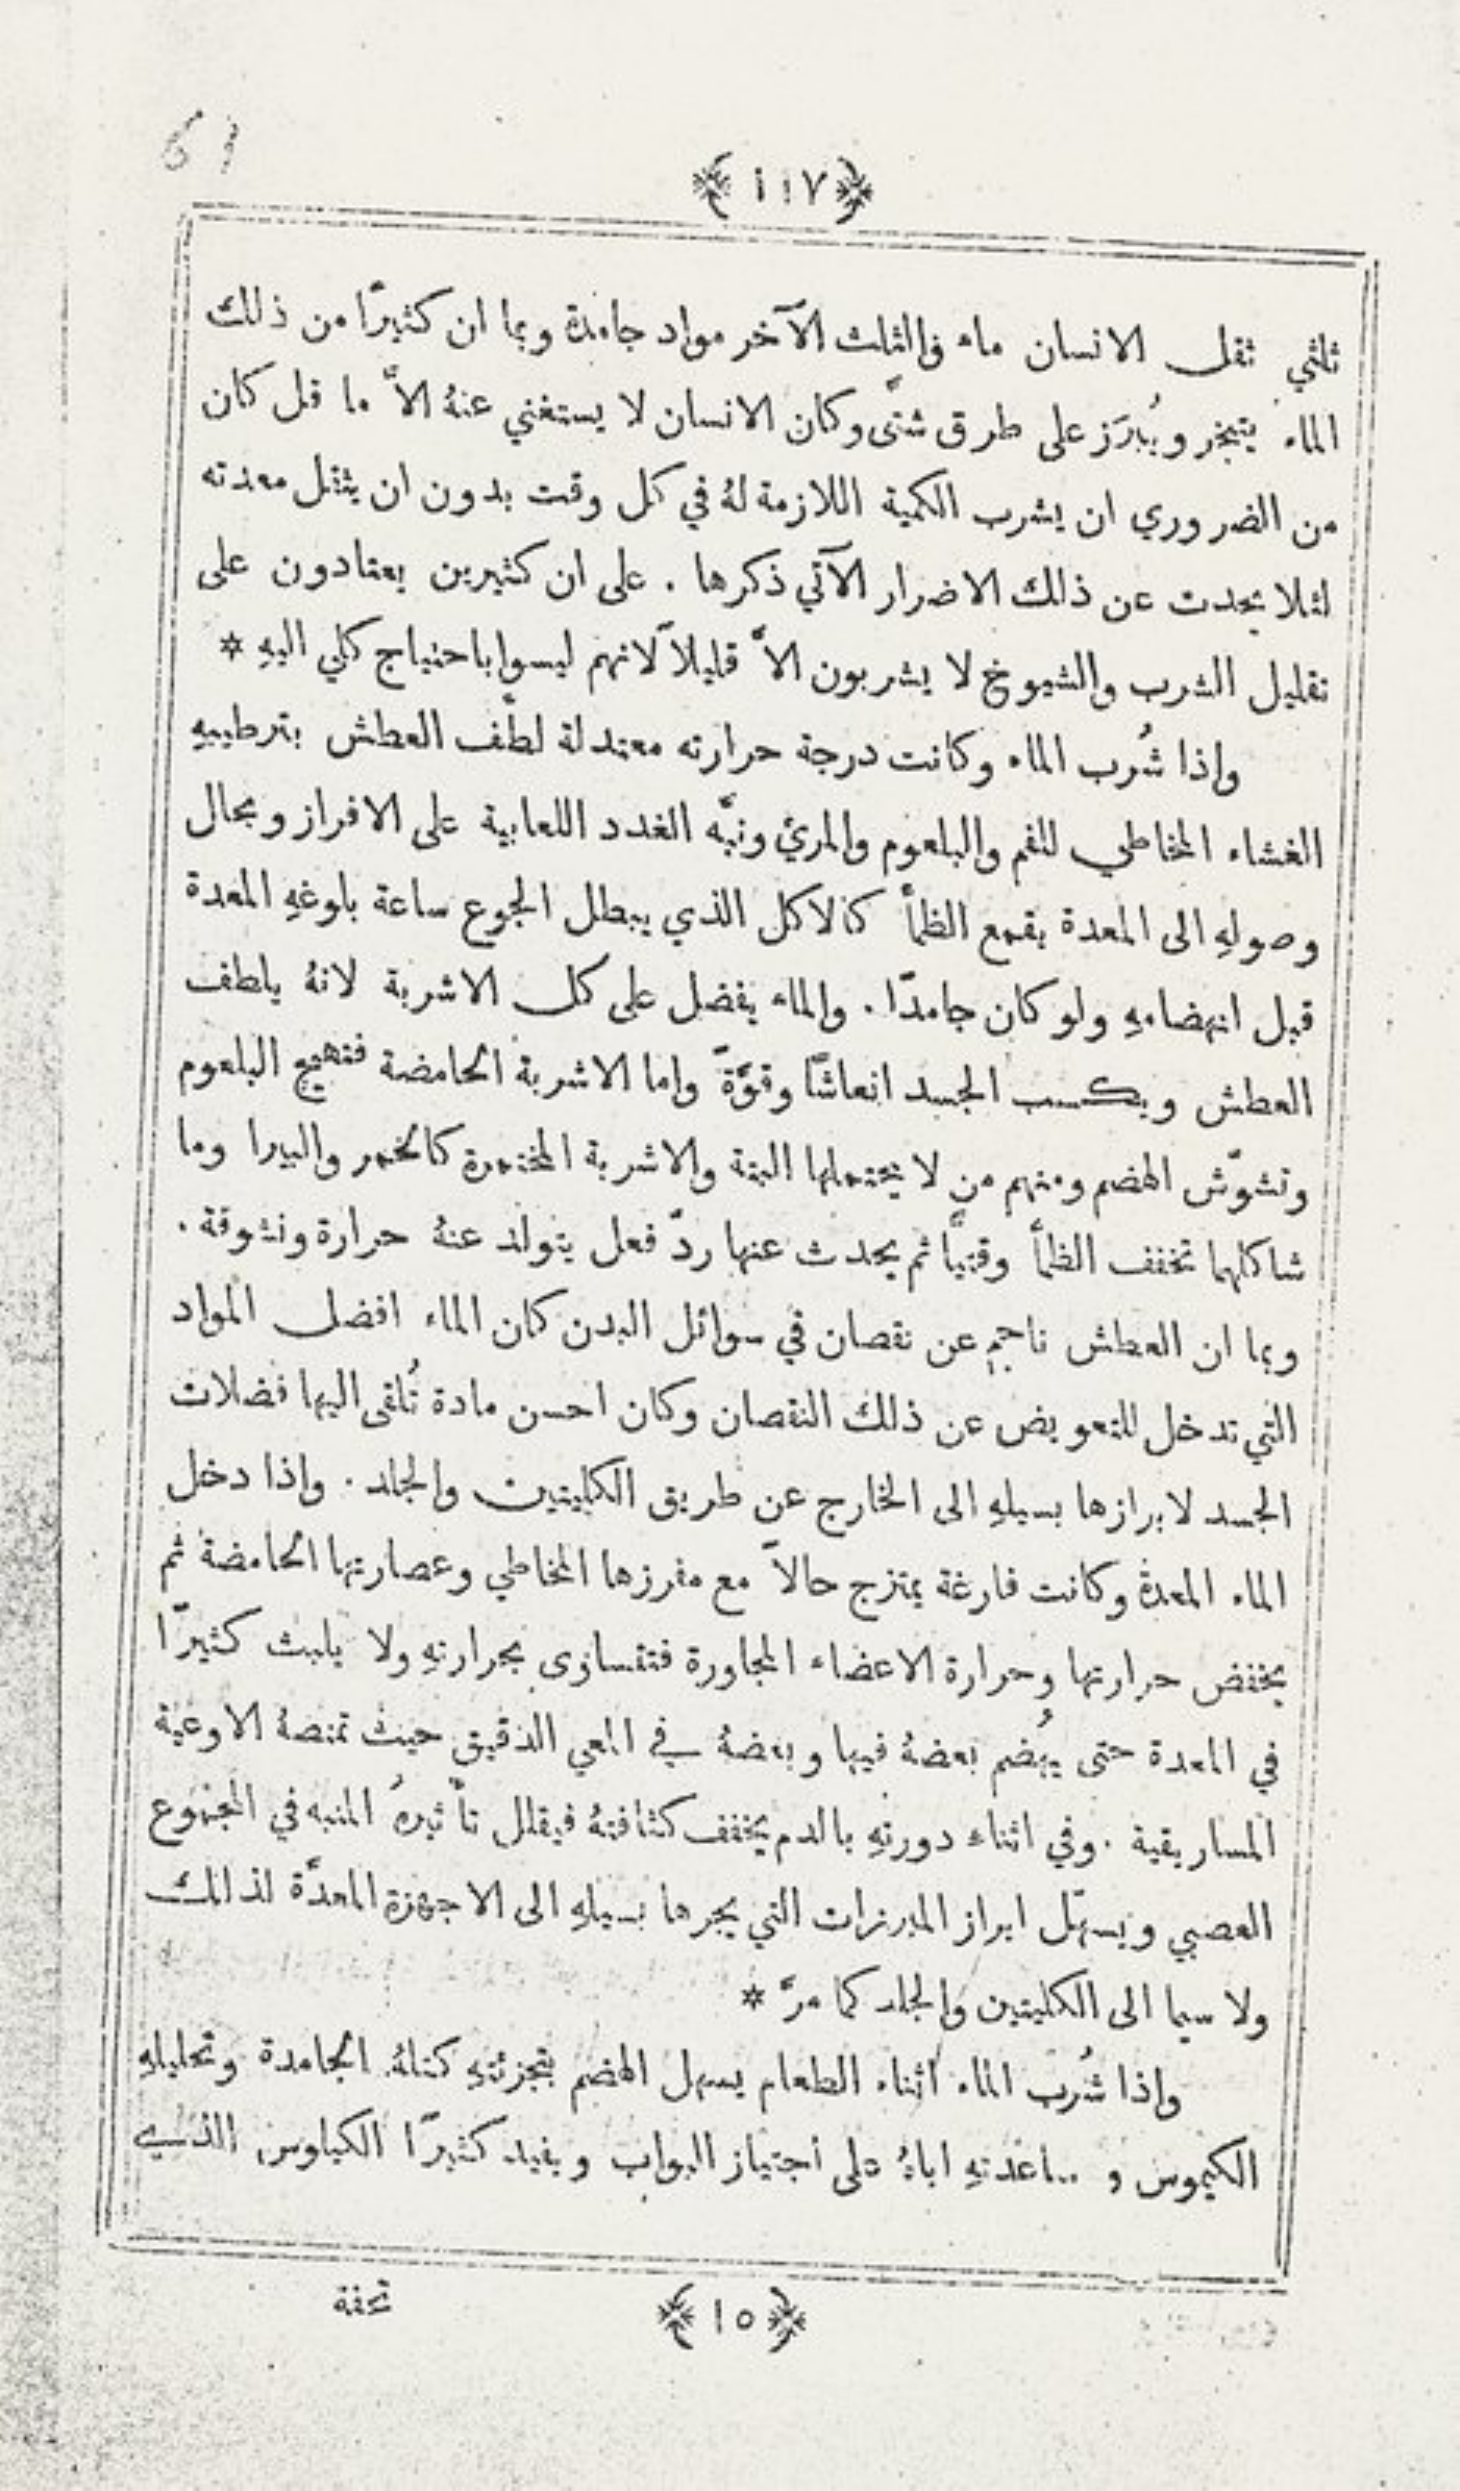 61
﴿ ١١٧ ﴾
ثلثي ثقل الانسان ماء والثلث الآخر مواد جامدة وبما ان كثيرًا من ذلك
الماء يتبخر ويُبرَز على طرق شتَّى وكان الانسان لا يستغني عنهُ الاَّ ما قل كان
من الضروري ان يشرب الكمية اللازمة لهُ في كل وقت بدون ان يثقل معدته
لئلا يحدث عن ذلك الاضرار الآتي ذكرها . على ان كثيرين يعتادون على
تقليل الشرب والشيوخ لا يشربون الاَّ قليلاً لانهم ليسوا باحتياج كلي اليهِ *
واذا شُرب الماء وكانت درجة حرارته معتدلة لطَّف العطش بترطيبهِ
الغشاء المخاطي للفم والبلعوم والمريء ونبَّه الغدد اللعابية على الافراز وبحال
وصولهِ الى المعدة يقمع الظمأ كالاكل الذي يبطل الجوع ساعة بلوغهِ المعدة
قبل انهضامهِ ولو كان جامدًا . والماء يفضل على كل الاشربة لانهُ يلطف
العطش ويكسب الجسد انعاشًا وقوَّةً واما الاشربة الحامضة فتهيج البلعوم
وتشوّش الهضم ومنهم من لا يحتملها البتة والاشربة المختمرة كالخمر والبيرا وما
شاكلهما تخفف الظمأ وقتيًّا ثم يحدث عنها ردّ فعل يتولد عنهُ حرارة ونشوفة .
وبما ان العطش ناجم عن نقصان في سوائل البدن كان الماء افضل المواد
التي تدخل للتعويض عن ذلك النقصان وكان احسن مادة تُلقى اليها فضلات
الجسد لابرازها بسيلهِ الى الخارج عن طريق الكليتين والجلد . واذا دخل
الماء المعدة وكانت فارغة يمتزج حالاً مع مفرزها المخاطي وعصارتها الحامضة ثم
يخفض حرارتها وحرارة الاعضاء المجاورة فتتساوى بحرارتهِ ولا يلبث كثيرًا
في المعدة حتى يُهضم بعضهُ فيها وبعضهُ في المعي الدقيق حيث تمتصهُ الاوعية
المساريقية . وفي اثناء دورتهِ بالدم يخفف كثافتهُ فيقلل تأثيرهُ المنبه في المجموع
العصبي ويسهّل ابراز المبرزات التي يجرها بسيلهِ الى الاجهزة المعدَّة لذلك
ولا سيما الى الكليتين والجلد كما مرَّ *
واذا شُرب الماء اثناء الطعام يسهل الهضم بتجزئتهِ كتلهُ الجامدة وتحليلهِ
الكيموس و اياهُ على اجتياز البواب ويفيد كثيرًا الكيلوس الذي
تحفة
﴿ ١٥ ﴾